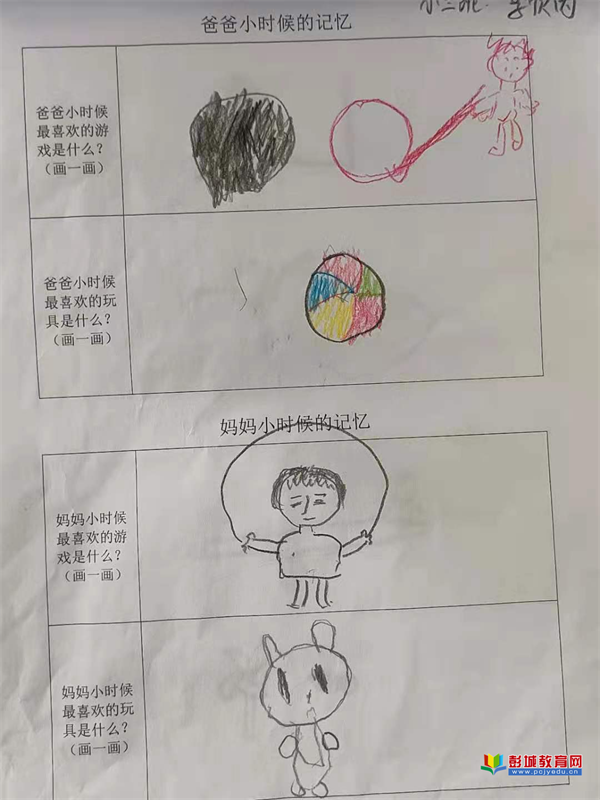 小二班
爸爸小时候的记忆
爸爸小时候
最喜欢的游
戏是什么？
（画一画）
爸爸小时候
最喜欢的玩
具是什么？
（画一画）
妈妈小时候的记忆
妈妈小时候
最喜欢的游
戏是什么？
（画一画）
妈妈小时候
最喜欢的玩
具是什么？
（画一画）
彭城教育网
www.pcjyedu.cn